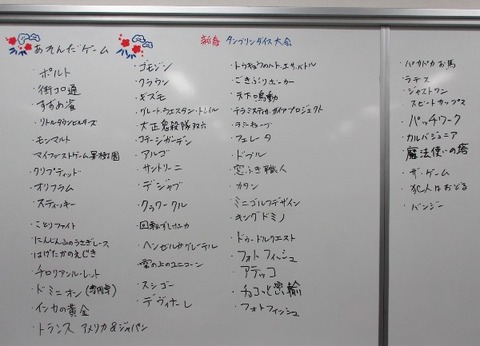 あそんだゲーム
・ポルト
・街コロ通
・すずめ雀
・リトルタウンビルダーズ
・モンマルト
・マイファーストゲーム 果樹園
・クリプティッド
・オリフラム
・スティッキー
・ことりファイト
・にんじんのうさぎレース
・はげたかのえじき
・チロリアンルーレット
・ドミニオン
・インカの黄金
・トランスアメリカ&ジャパン
・ゴモジン
・クラウン
・ギズモ
・グレートウエスタントレイル
・大正怠殺隊双六
・コテージガーデン
・アルゴ
・サントリーニ
・デジャブ
・クワークル
・回転すしサニカ
・ヘンゼルとグレーテル
・雲の上のユニコーン
・スシゴー
・デヴィナーレ
新春 タンブリンダイス大会
・ごきぶりポーカー
・天下鳴動
・テラミスティカ:ガイアプロジェクト
・フェレータ
・ドブル
・窓ふき職人
・カタン
・ミニゴルフデザイン
・キングドミノ
・ドゥードルクエスト
・フォトフィッシュ
・アタッコ
・チョコっと密輸
・フォトフィッシュ
・パカパカお馬
・ラチス
・ジャストワン
・スピードカップス
・パッチワーク
・カルバジョニア
・魔法使いの塔
・ザ・ゲーム
・犯人はおどる
・バンジー